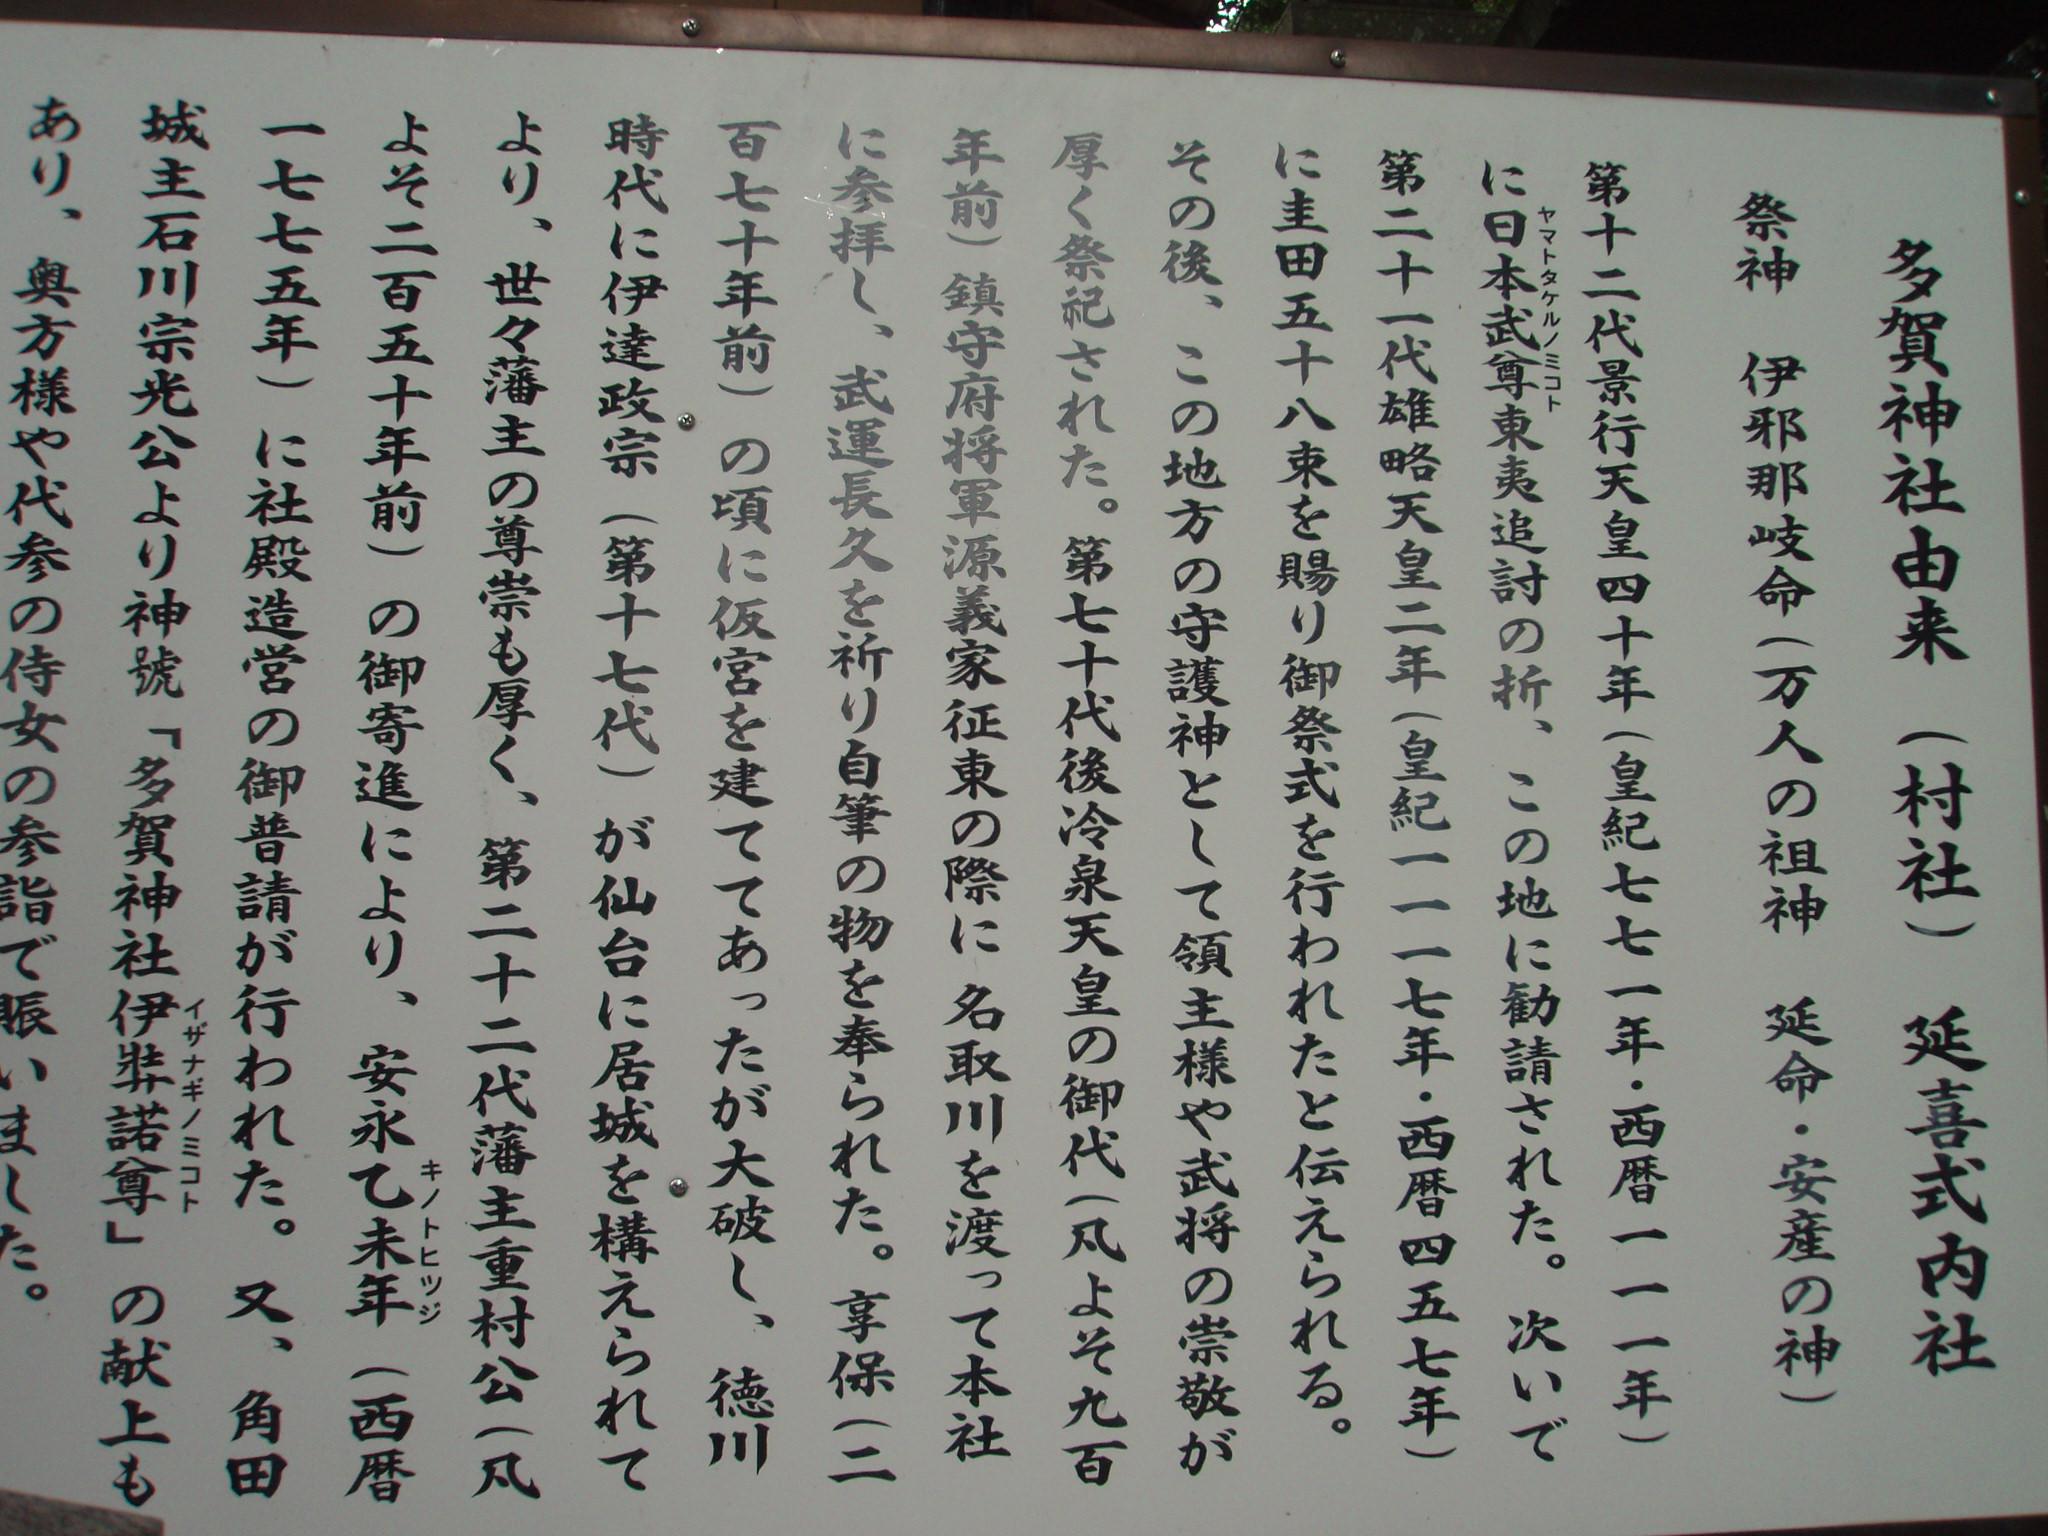 多賀神社由来　（村社）　延喜式内社
祭神　伊邪那岐命（万人の祖神　延命・安産の神）
第十二代景行天皇四十年（皇紀七七一年・西暦一一一年）
に日本武尊東夷追討の折、この地に勧請された。次いで
ヤマトタケルノミコト
第二十一代雄略天皇二年（皇紀一一一七年・西暦四五七年）
に圭田五十八束を賜り御祭式を行われたと伝えられる。
その後、この地方の守護神として領主様や武将の崇敬が
厚く祭祀された。第七十代後冷泉天皇の御代（凡よそ九百
年前）鎮守府将軍源義家征東の際に名取川を渡って本社
に参拝し、武運長久を祈り自筆の物を奉られた。享保（二
百七十年前）の頃に仮宮を建ててあったが大破し、徳川
時代に伊達政宗（第十七代）が仙台に居城を構えられて
より、世々藩主の尊崇も厚く、第二十二代藩主重村公（凡
よそ二百五十年前）の御寄進により、安永乙未年（西暦
キノトヒツジ
一七七五年）に社殿造営の御普請が行われた。又、角田
城主石川宗光公より神號「多賀神社伊弉諾尊」の献上も
イザナギノミコト
あり、奥方様や代参の侍女の参詣で賑いました。